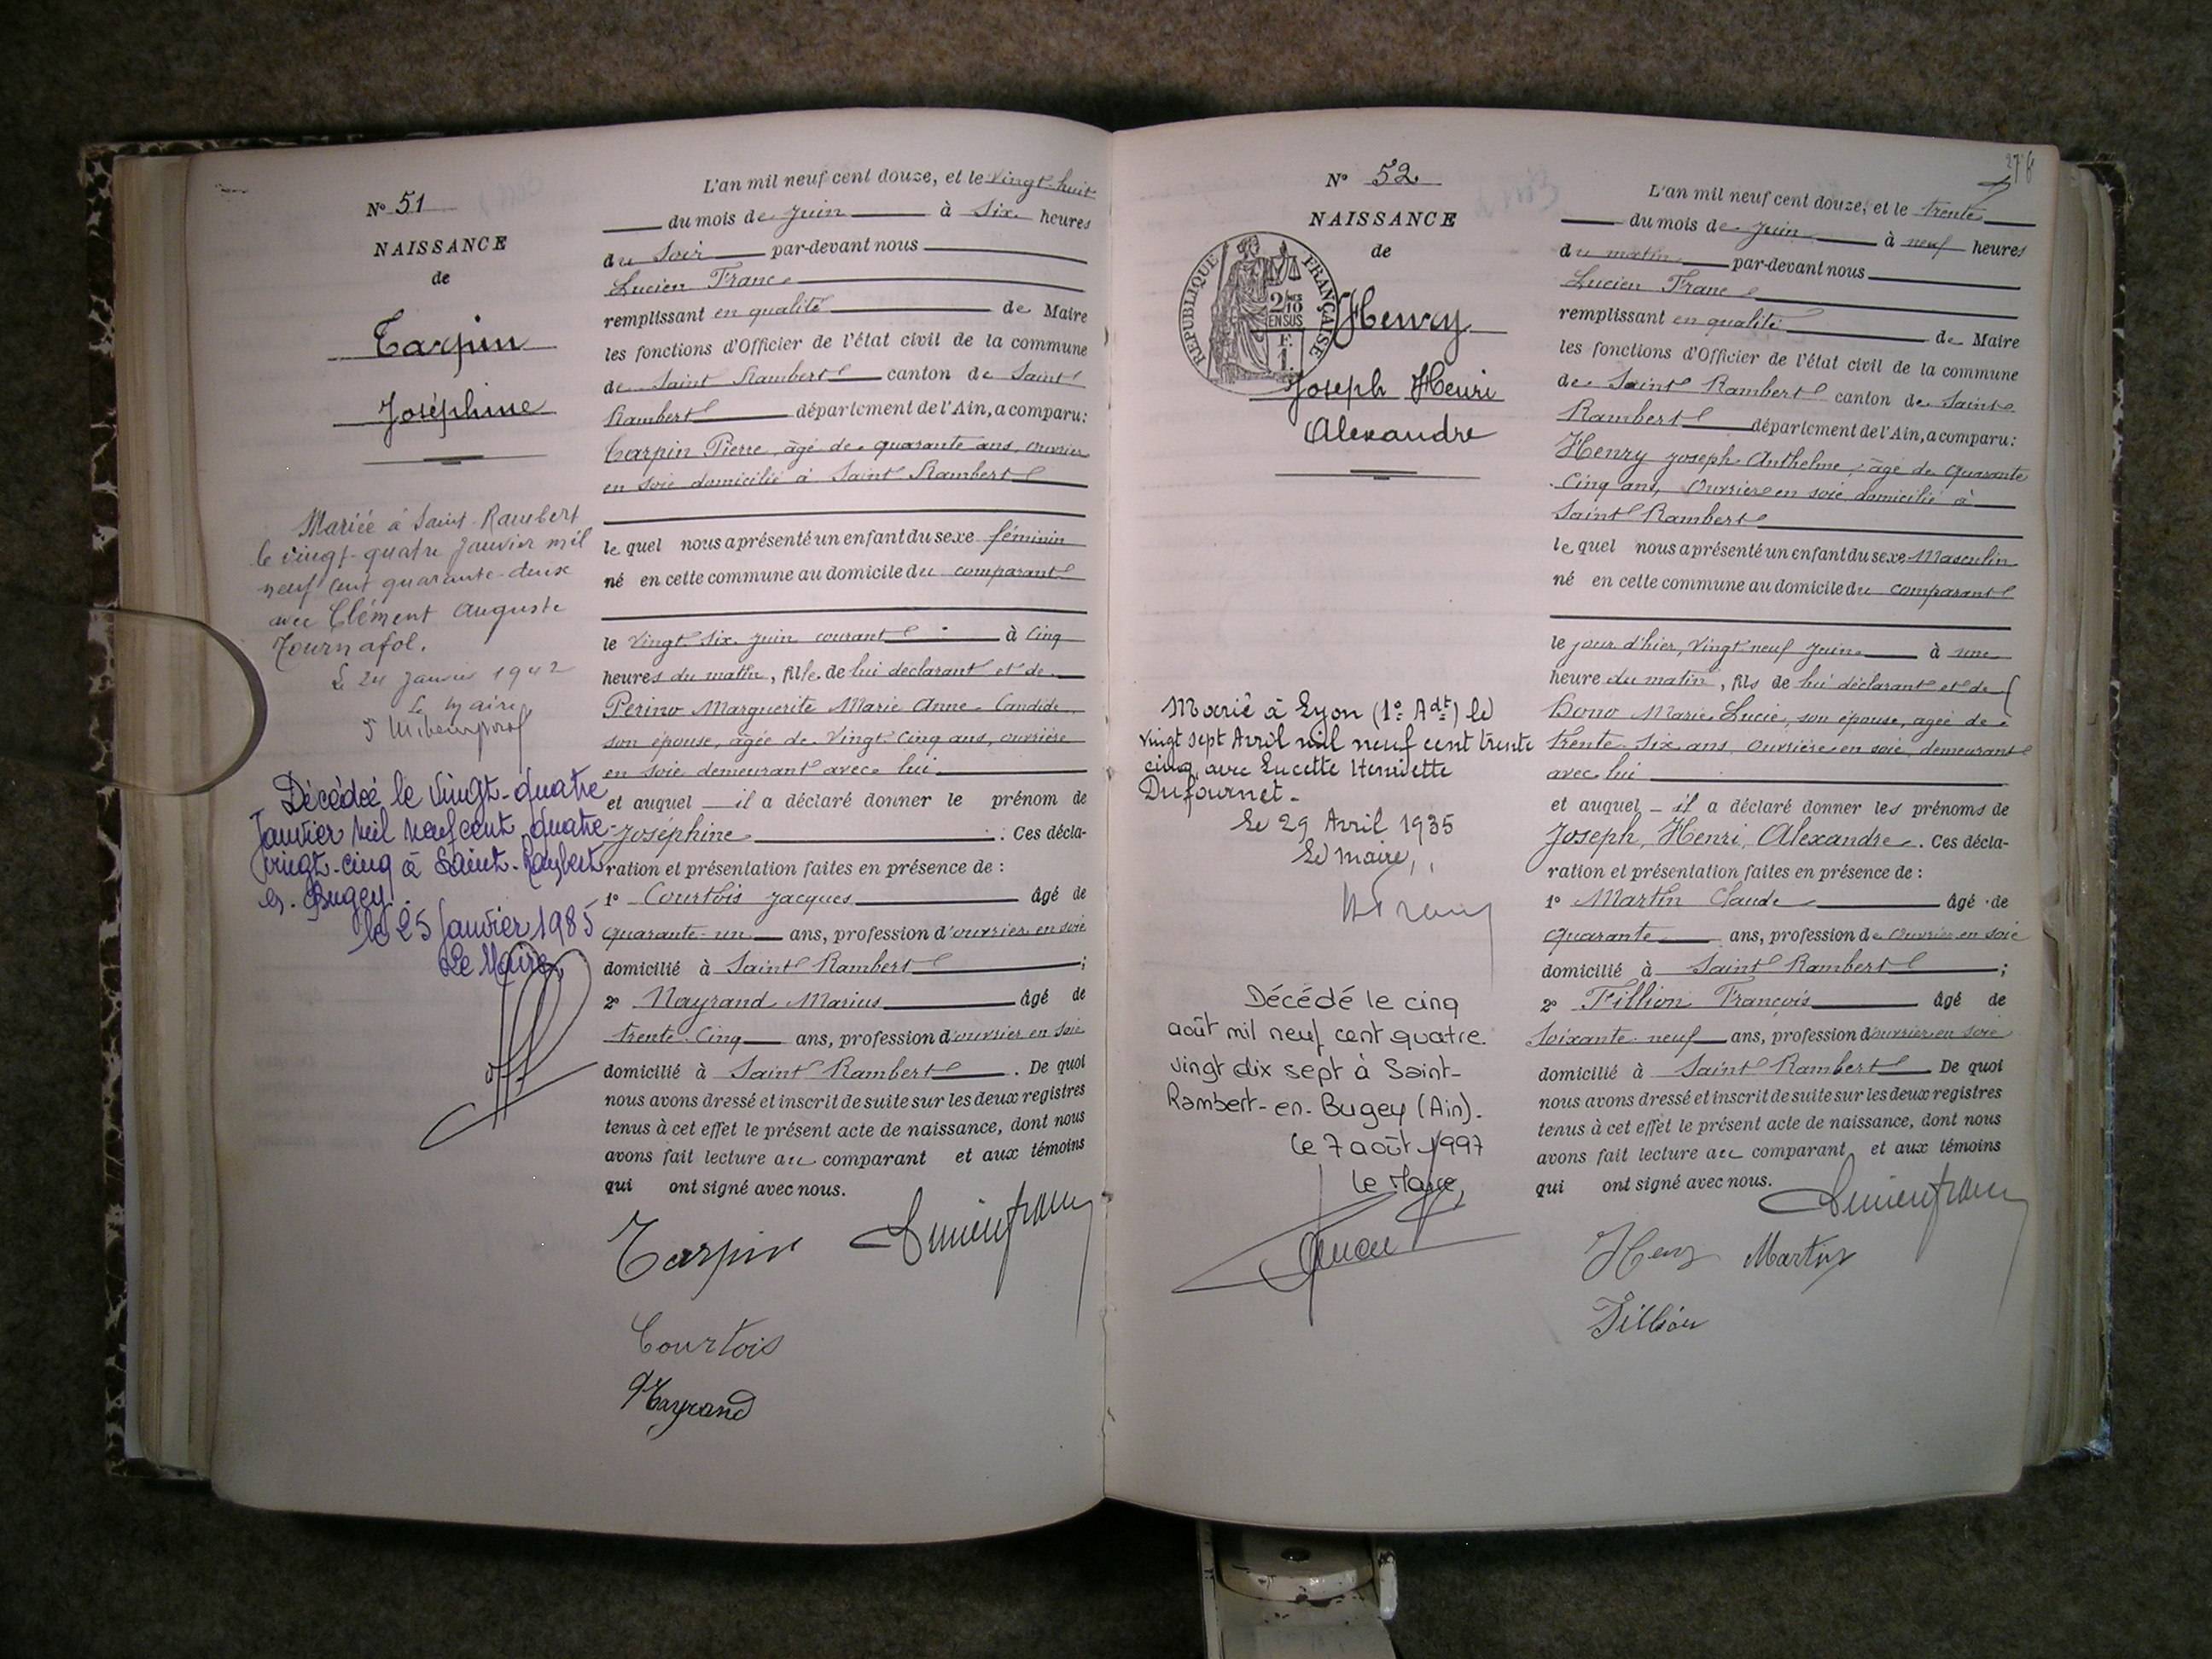 N° 51
NAISSANCE
de
Tarpin
Joséphine
Mariée à Saint-Rambert
le vingt-quatre janvier mil
neuf cent quarante-deux
avec Clément Auguste
Tournafol.
Le 24 janvier 1942
Le Maire
Décédée le vingt-quatre
Janvier mil neuf cent quatre-
vingt-cinq à Saint-Rambert
en-Bugey.
le 25 janvier 1985
Le Maire,
L'an mil neuf cent douze, et le vingt-huit
du mois de Juin à Six heures
du Soir par-devant nous
Lucien Franc
remplissant en qualité de Maire
les fonctions d'Officier de l'état civil de la commune
de Saint Rambert canton de Saint
Rambert département de l'Ain, a comparu:
Tarpin Pierre, âgé de quarante ans, ouvrier
en soie domicilié à Saint Rambert
le quel nous a présenté un enfant du sexe féminin
né en cette commune au domicile du comparant
le vingt six juin courant à Cinq
heures du matin, fille de lui déclarant et de
Perino Marguerite Marie Anne Candide,
son épouse, âgée de vingt cinq ans, ouvrière
en soie demeurant avec lui
et auquel il a déclaré donner le prénom de
Joséphine . Ces décla-
ration et présentation faites en présence de :
1° Courtois Jacques âgé de
quarante-un ans, profession d'ouvrier en soie
domicilié à Saint Rambert ;
2° Nayrand Marius âgé de
trente-cinq ans, profession d'ouvrier en soie
domicilié à Saint Rambert . De quoi
nous avons dressé et inscrit de suite sur les deux registres
tenus à cet effet le présent acte de naissance, dont nous
avons fait lecture au comparant et aux témoins
qui ont signé avec nous.
Tarpin Lucien franc
Courtois
Nayrand
N° 52
NAISSANCE
de
RÉPUBLIQUE FRANÇAISE
2/10
EN SUS
F.
1.
Henry
Joseph Henri
Alexandre
Marié à Lyon (1° Adt) le
vingt sept Avril mil neuf cent trente
cinq, avec Lucette Henriette
Dufournet.
Le 29 Avril 1935
Le maire,
Décédé le cinq
août mil neuf cent quatre
vingt dix sept à Saint-
Rambert-en-Bugey (Ain).
le 7 août 1997
le Maire,
L'an mil neuf cent douze, et le trente
du mois de Juin à neuf heures
du matin par-devant nous
Lucien Franc
remplissant en qualité de Maire
les fonctions d'Officier de l'état civil de la commune
de Saint Rambert canton de Saint
Rambert département de l'Ain, a comparu:
Henry Joseph Anthelme, âgé de Quarante
Cinq ans, Ouvrier en soie, domicilié à
Saint Rambert
le quel nous a présenté un enfant du sexe Masculin
né en cette commune au domicile du comparant
le jour d'hier, vingt neuf Juin à une
heure du matin, fils de lui déclarant et de
Bono Marie Lucie, son épouse, agée de
trente six ans, Ouvrière en soie, demeurant
avec lui
et auquel il a déclaré donner les prénoms de
Joseph, Henri, Alexandre. Ces décla-
ration et présentation faites en présence de :
1° Martin Claude âgé de
quarante ans, profession de Ouvrier en soie
domicilié à Saint Rambert ;
2° Fillion François âgé de
Soixante-neuf ans, profession d'ouvrier en soie
domicilié à Saint Rambert De quoi
nous avons dressé et inscrit de suite sur les deux registres
tenus à cet effet le présent acte de naissance, dont nous
avons fait lecture au comparant et aux témoins
qui ont signé avec nous.
Lucien franc
Henry Martin
Fillion